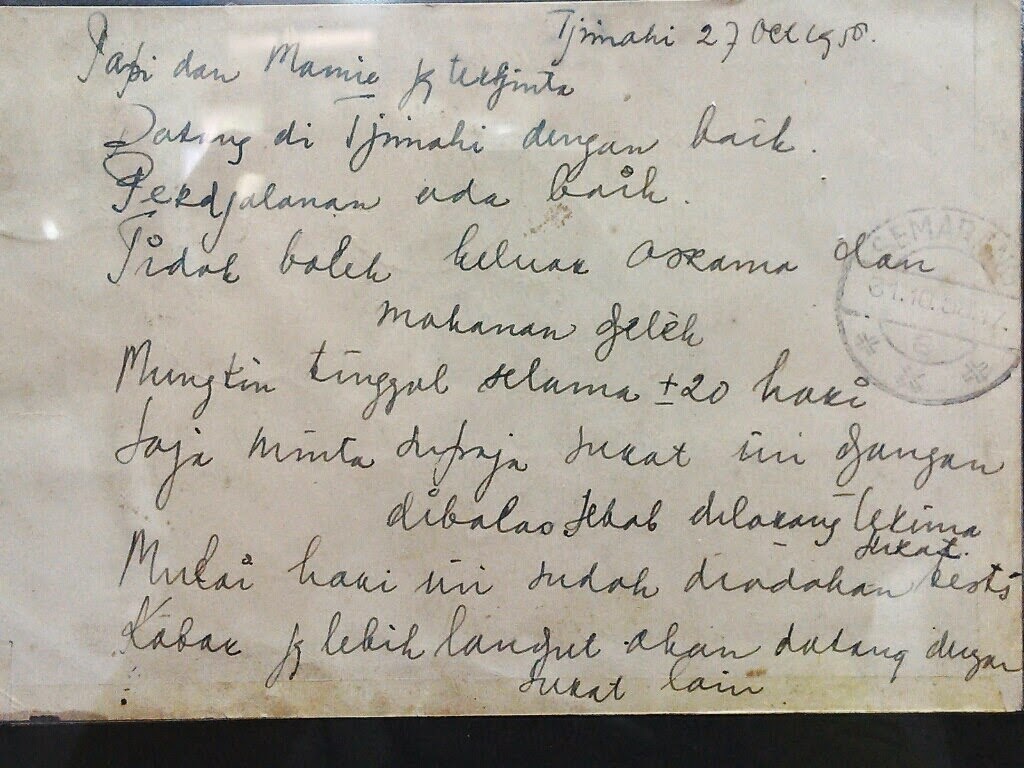 Tjimahi 27 Oct 1958.
Papi dan Mamie jg tertjinta
Datang di Tjimahi dengan baik.
Perdjalanan ada baik.
Tidak boleh keluar asrama dan
makanan djelek
Mungkin tinggal selama ± 20 hari
Saja minta supaja surat ini djangan
dibalas sebab dilarang terima
surat.
Mulai hari ini sudah diadakan tests
Kabar jg lebih landjut akan datang dengan
surat lain
SEMARANG
31.10.58.17.